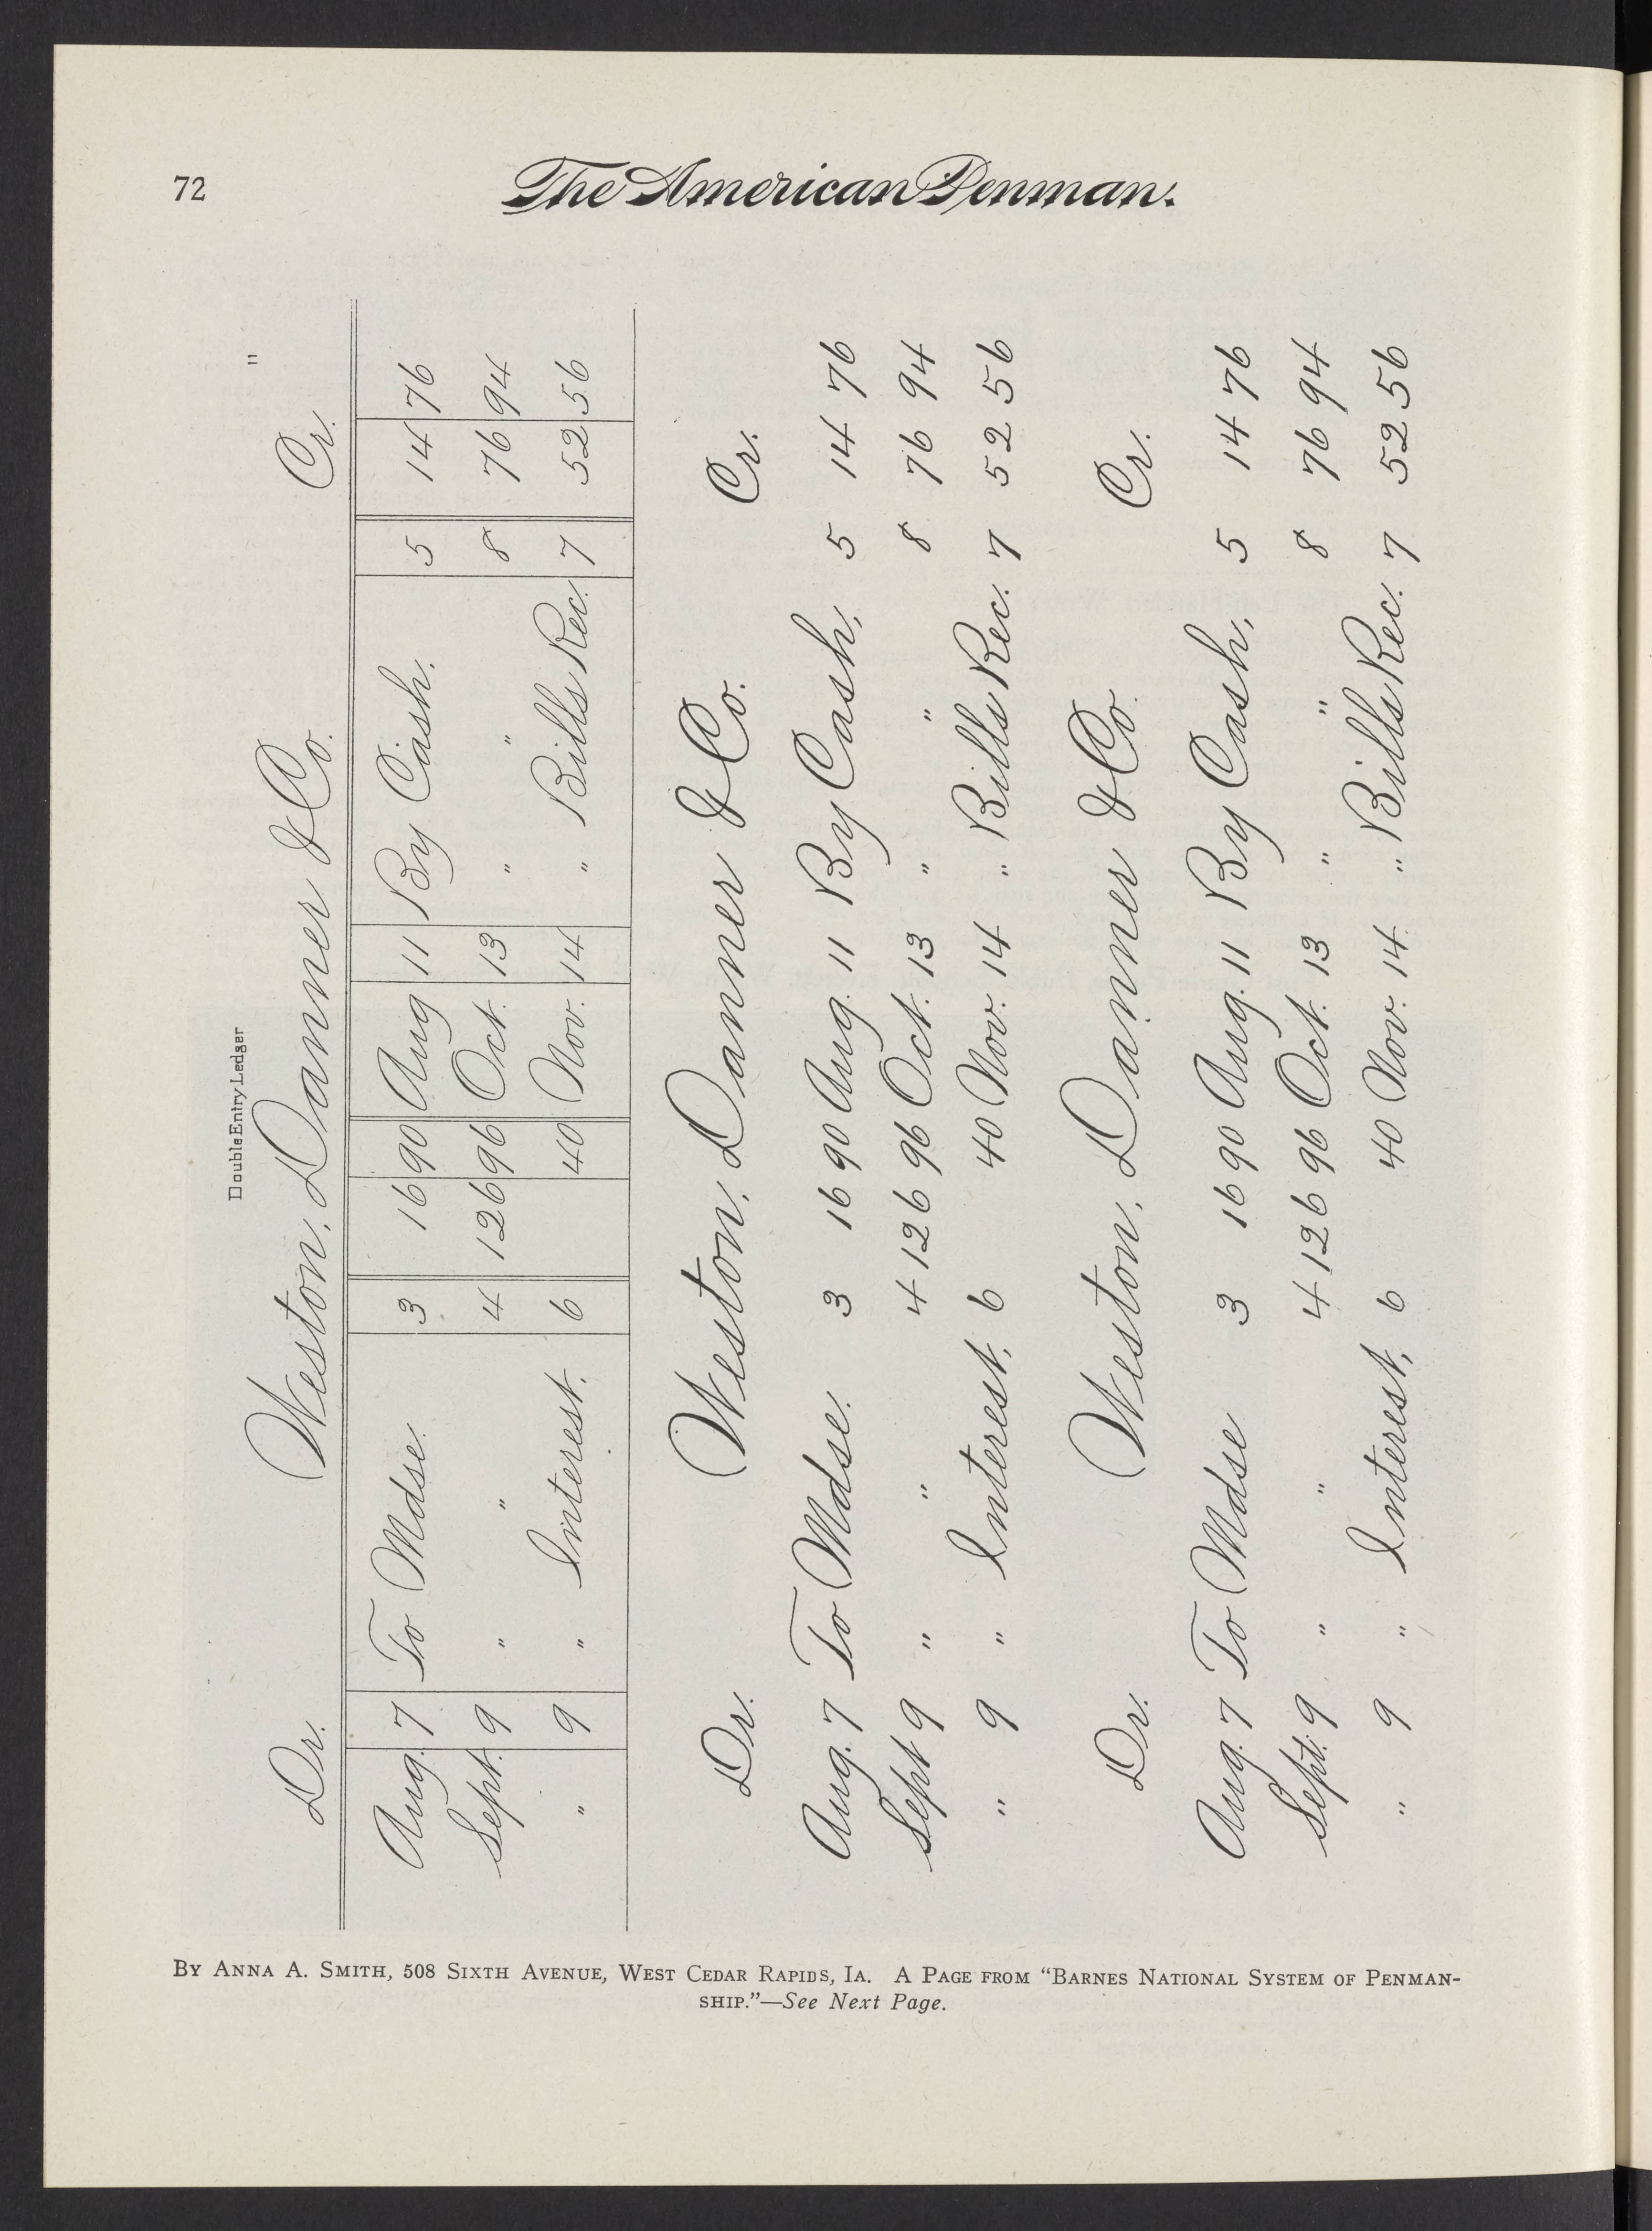 72
The American Penman.
Double Entry Ledger
"
Dr. Weston, Danner & Co. Cr.
Aug. 7 To Mdse. 3 16 90 Aug 11 By Cash, 5 14 76
Sept. 9 " " 4 126 96 Oct. 13 " " 8 76 94
" 9 " Interest, 6 40 Nov. 14 " Bills Rec. 7 52 56
Dr. Weston, Danner & Co. Cr.
Aug. 7 To Mdse. 3 16 90 Aug. 11 By Cash, 5 14 76
Sept 9 " " 4 126 96 Oct. 13 " " 8 76 94
" 9 " Interest, 6 40 Nov. 14 " Bills Rec. 7 52 56
Dr. Weston, Danner & Co. Cr.
Aug. 7 To Mdse 3 16 90 Aug. 11 By Cash, 5 14 76
Sept. 9 " " 4 126 96 Oct. 13 " " 8 76 94
" 9 " Interest, 6 40 Nov. 14 " Bills Rec. 7 52 56
By Anna A. Smith, 508 Sixth Avenue, West Cedar Rapids, Ia. A Page from "Barnes National System of Penman-
ship."—See Next Page.